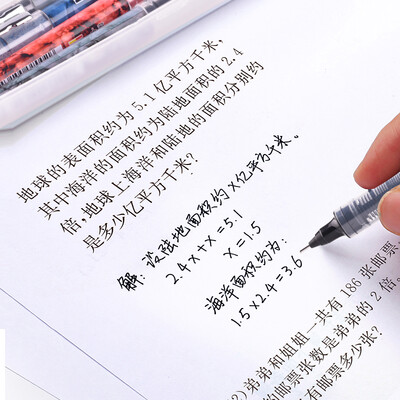 地球的表面积约为5.1亿平方千米，
其中海洋的面积约为陆地面积的2.4
倍，地球上海洋和陆地的面积分别约
是多少亿平方千米？
解：设陆地面积约X亿平方千米。
2.4x+x=5.1
x=1.5
海洋面积约为：
1.5×2.4=3.6
2)弟弟和姐姐一共有186张邮票
的邮票张数是弟弟的2倍。
有邮票多少张？